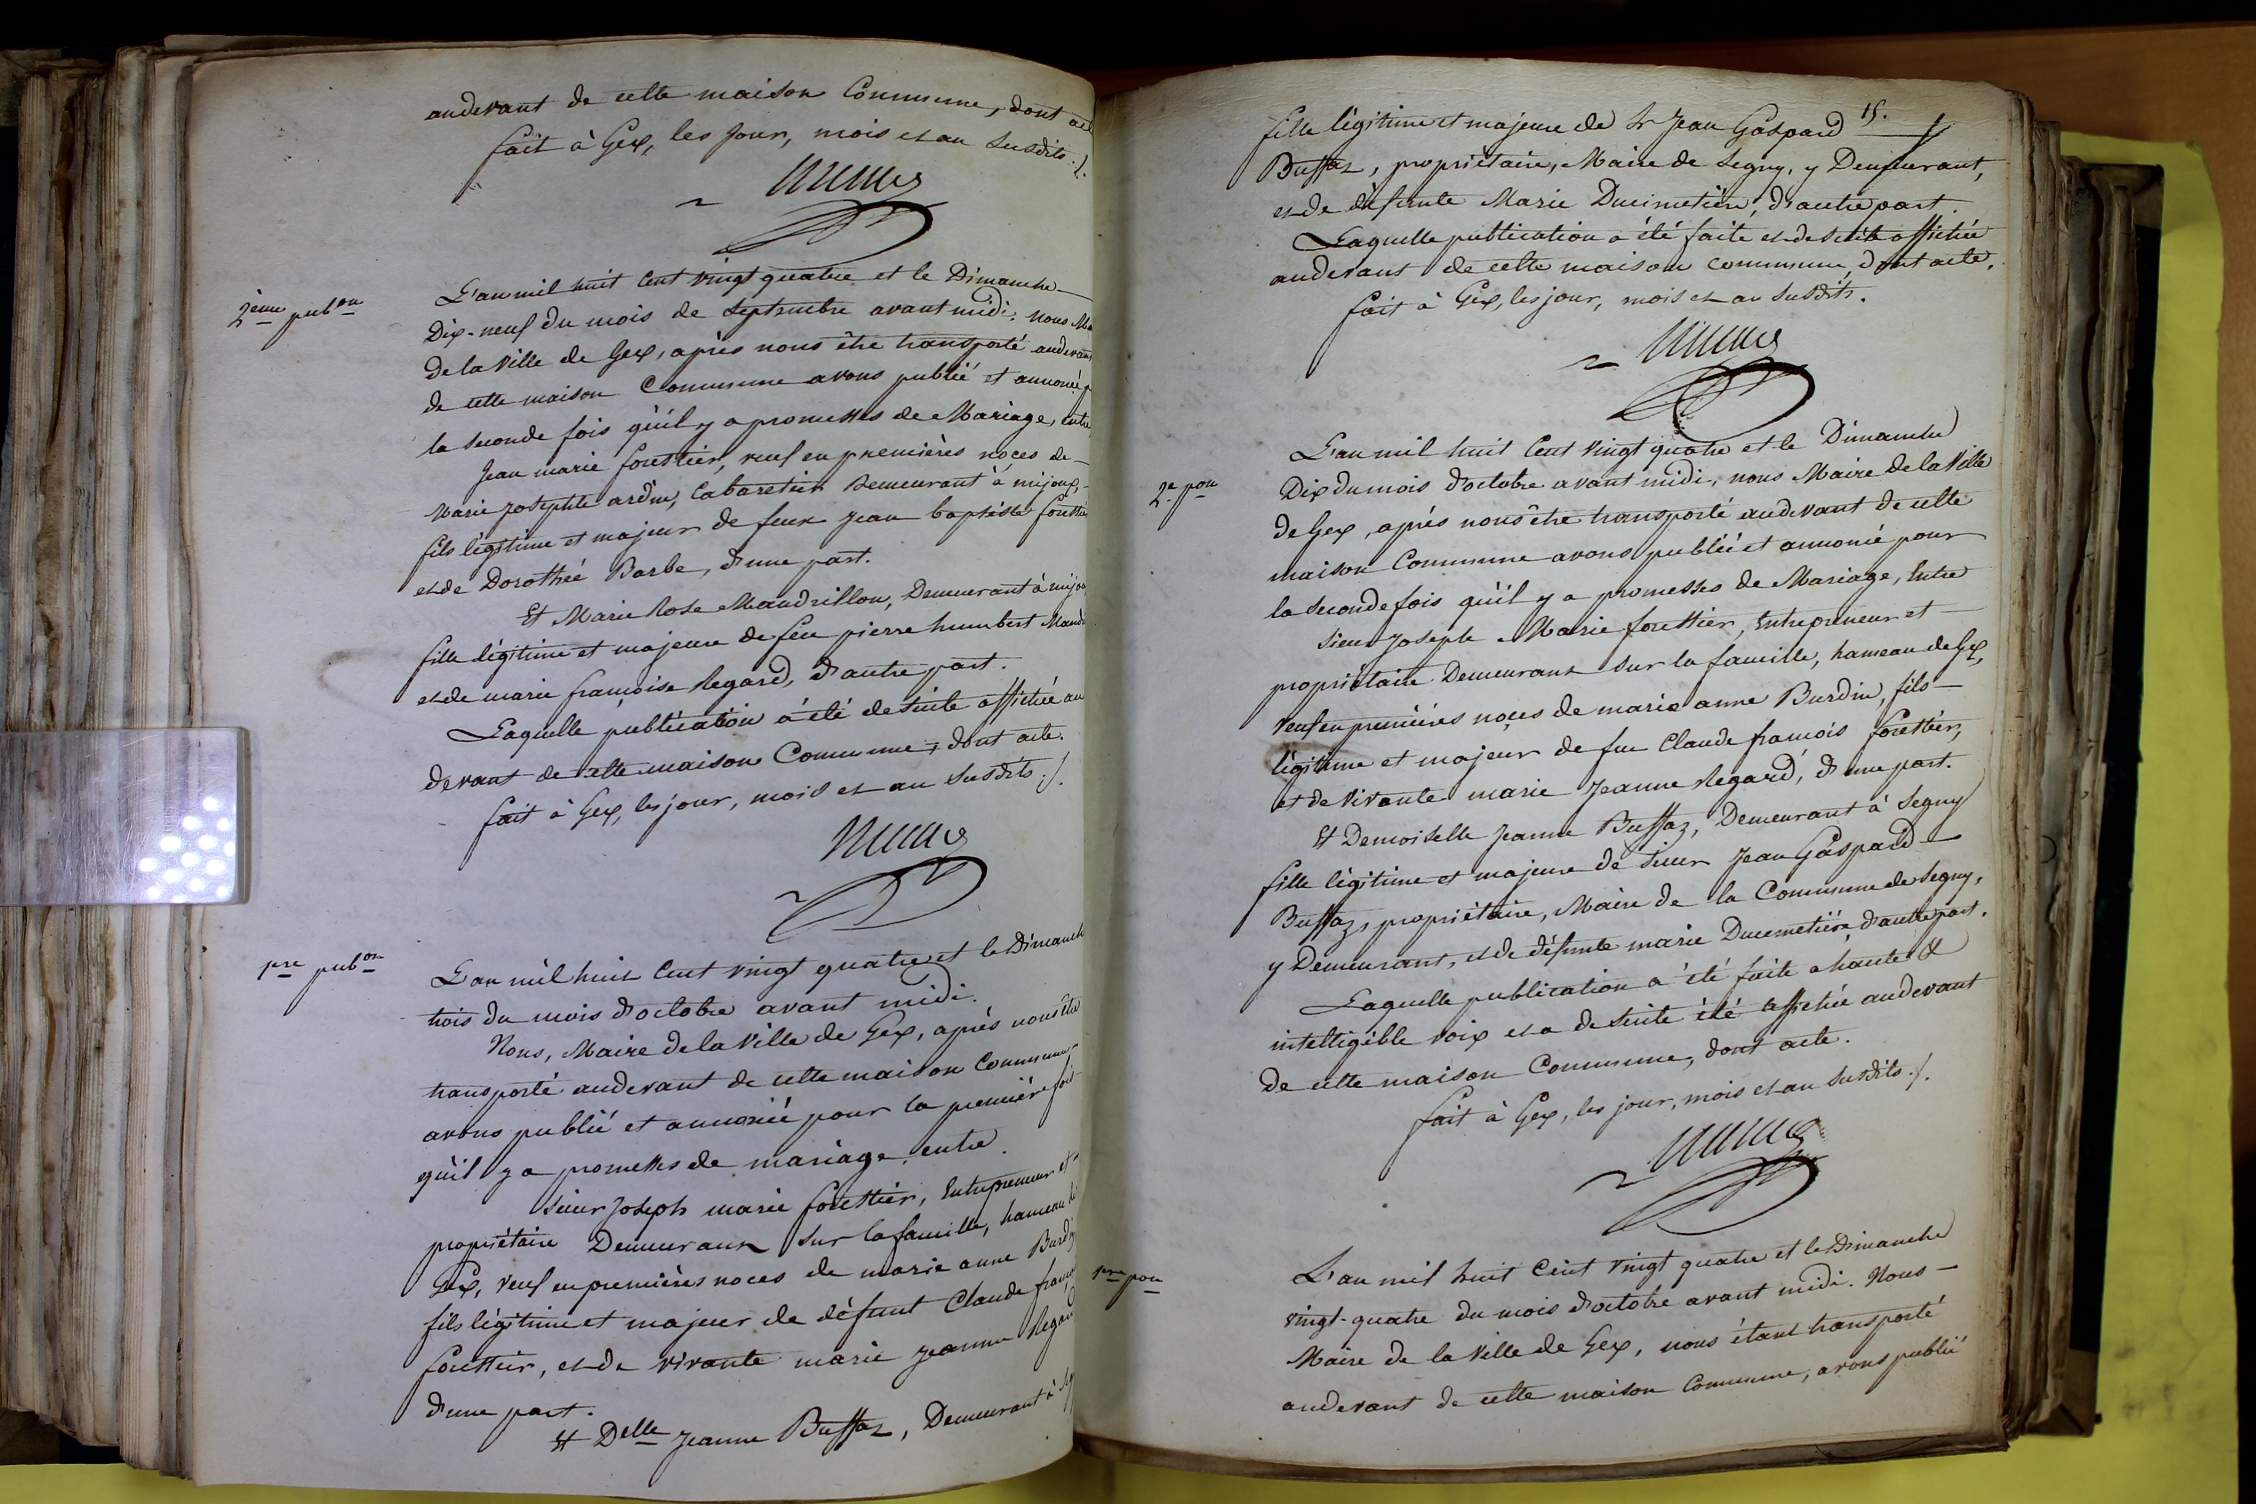 audevant de cette maison Commune, dont acte
fait à Gex, les Jour, mois et an susdits ./.
2ème pubon
L'an mil huit Cent vingt quatre et le Dimanche
Dix-neuf du mois de Septembre avant midi, nous Ma
de la Ville de Gex, après nous être transporté audevant
de cette maison Commune avons publié et annoncé p
la seconde fois qu'il y a promesses de Mariage, entre
Jean marie forestier, veuf en premières noces de
Marie Josephte ardin, Cabaretier Demeurant à mijoux,
fils légitime et majeur de feux Jean baptiste forestier
et de Dorothée Barbe, d'une part.
Et Marie Rose Mandrillon, Demeurant à mijou
fille légitime et majeure de feu pierre humbert Mand
et de marie françoise Regard, d'autre part.
Laquelle publication a été de suite affichée au
devant de cette maison Commune, dont acte.
fait à Gex, les jour, mois et an susdits ./.
1re pubon
L'an mil huit Cent vingt quatre et le Dimanche
trois du mois d'octobre avant midi.
Nous, Maire de la Ville de Gex, après nous être
transporté audevant de cette maison Commune
avons publié et annoncé pour la première fois
qu'il y a promesses de mariage, entre
Sieur Joseph marie forestier, Entrepreneur et
propriétaire Demeurant sur la faucille, hameau de
Gex, veuf en premières noces de marie anne Burdin
fils légitime et majeur de défunt Claude françois
forestier, et de vivante marie jeanne Regard
d'une part.
Et Delle Jeanne Buffaz, Demeurant à Seg
15.
fille légitime et majeure de Sr Jean Gaspard
Buffaz, propriétaire, Maire de Segny, y Demeurant,
et de défunte Marie Ducimetière, d'autre part.
Laquelle publication a été faite et de suite affichée
audevant de cette maison commune, dont acte.
fait à Gex, les jour, mois et an susdits.
2e pon
L'an mil huit Cent vingt quatre et le Dimanche
Dix du mois d'octobre avant midi, nous Maire de la Ville
de Gex, après nous être transporté audevant de cette
maison Commune avons publié et annoncé pour
la seconde fois qu'il y a promesses de Mariage, Entre
Sieur Joseph Marie forestier, Entrepreneur et
propriétaire Demeurant sur la faucille, hameau de Gex,
veuf en premières noces de marie anne Burdin, fils
légitime et majeur de feu Claude françois forestier,
et de vivante marie Jeanne Regard, d'une part.
Et Demoiselle Jeanne Buffaz, Demeurant à Segny
fille légitime et majeure de Sieur Jean Gaspard
Buffaz, propriétaire, Maire de la Commune de Segny,
y Demeurant, et de défunte marie Ducimetière d'autre part.
Laquelle publication a été faite a haute &
intelligible voix et a de suite été affichée audevant
de cette maison Commune, dont acte.
fait à Gex, les jour, mois et an susdits ./.
1re pon
L'an mil huit Cent vingt quatre et le Dimanche
vingt-quatre du mois d'octobre avant midi. Nous
Maire de la Ville de Gex, nous étant transporté
audevant de cette maison Commune, avons publié